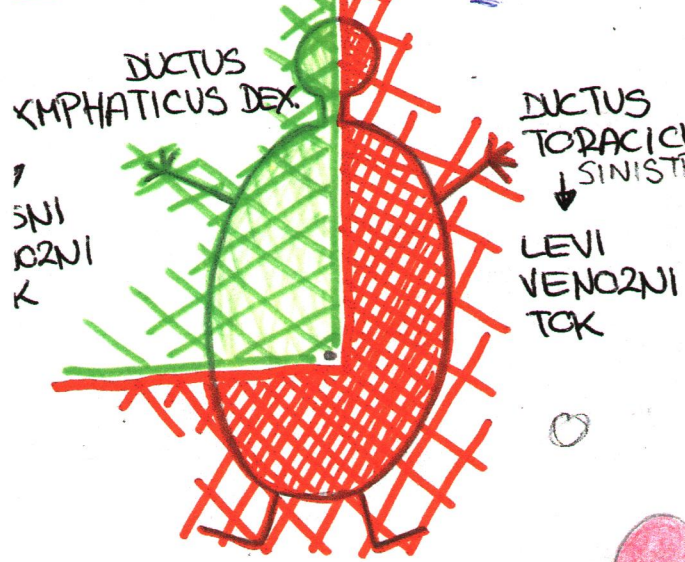 DUCTUS
YMPHATICUS DEX.
SNI
OZNI
K
DUCTUS
TORACIC
SINIST
LEVI
VENOZNI
TOK